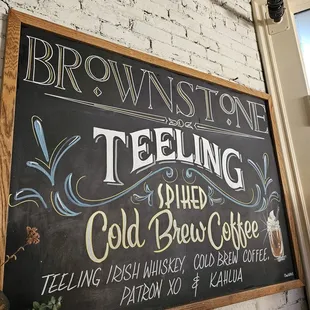 BROWNSTONE
TEELING
SPIKED
Cold Brew Coffee
TEELING IRISH WHISKEY, COLD BREW COFFEE,
PATRON XO & KAHLUA